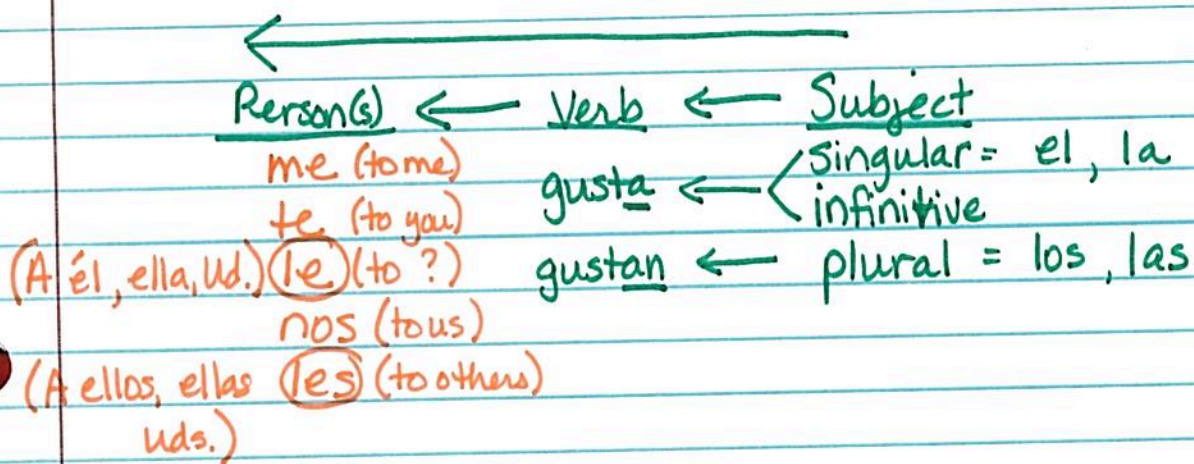 Person(s) ← Verb ← Subject
me (to me)
te (to you)
(A él, ella, Ud.) le (to ?)
nos (to us)
(A ellos, ellas les (to others)
uds.)
gusta ← singular = el, la
infinitive
gustan ← plural = los, las